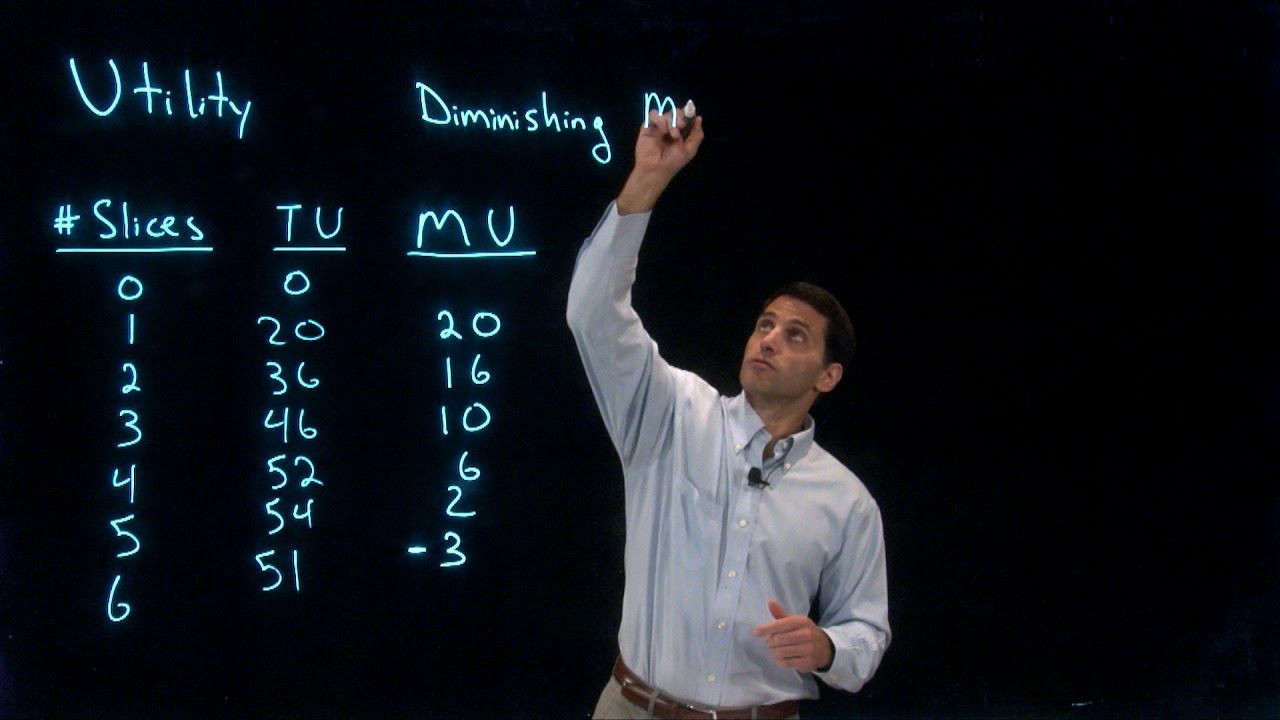 Utility Diminishing M
# Slices TU MU
0 0
1 20 20
2 36 16
3 46 10
4 52 6
5 54 2
6 51 -3